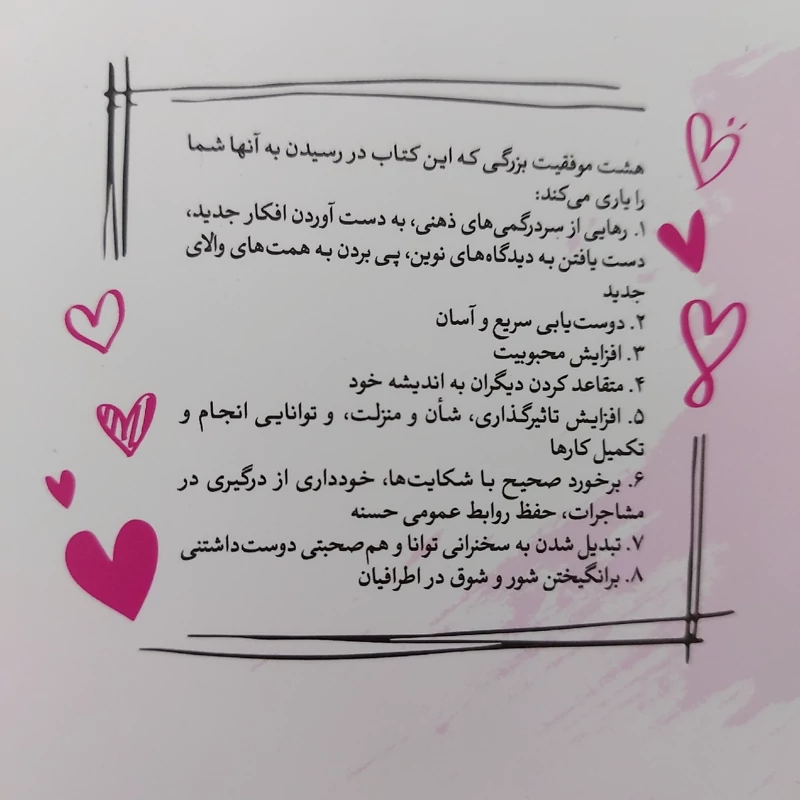 هشت موفقیت بزرگی که این کتاب در رسیدن به آنها شما
را یاری می‌کند:
۱. رهایی از سردرگمی‌های ذهنی، به دست آوردن افکار جدید،
دست یافتن به دیدگاه‌های نوین، پی بردن به همت‌های والای
جدید
۲. دوست‌یابی سریع و آسان
۳. افزایش محبوبیت
۴. متقاعد کردن دیگران به اندیشه خود
۵. افزایش تاثیرگذاری، شأن و منزلت، و توانایی انجام و
تکمیل کارها
۶. برخورد صحیح با شکایت‌ها، خودداری از درگیری در
مشاجرات، حفظ روابط عمومی حسنه
۷. تبدیل شدن به سخنرانی توانا و هم‌صحبتی دوست‌داشتنی
۸. برانگیختن شور و شوق در اطرافیان